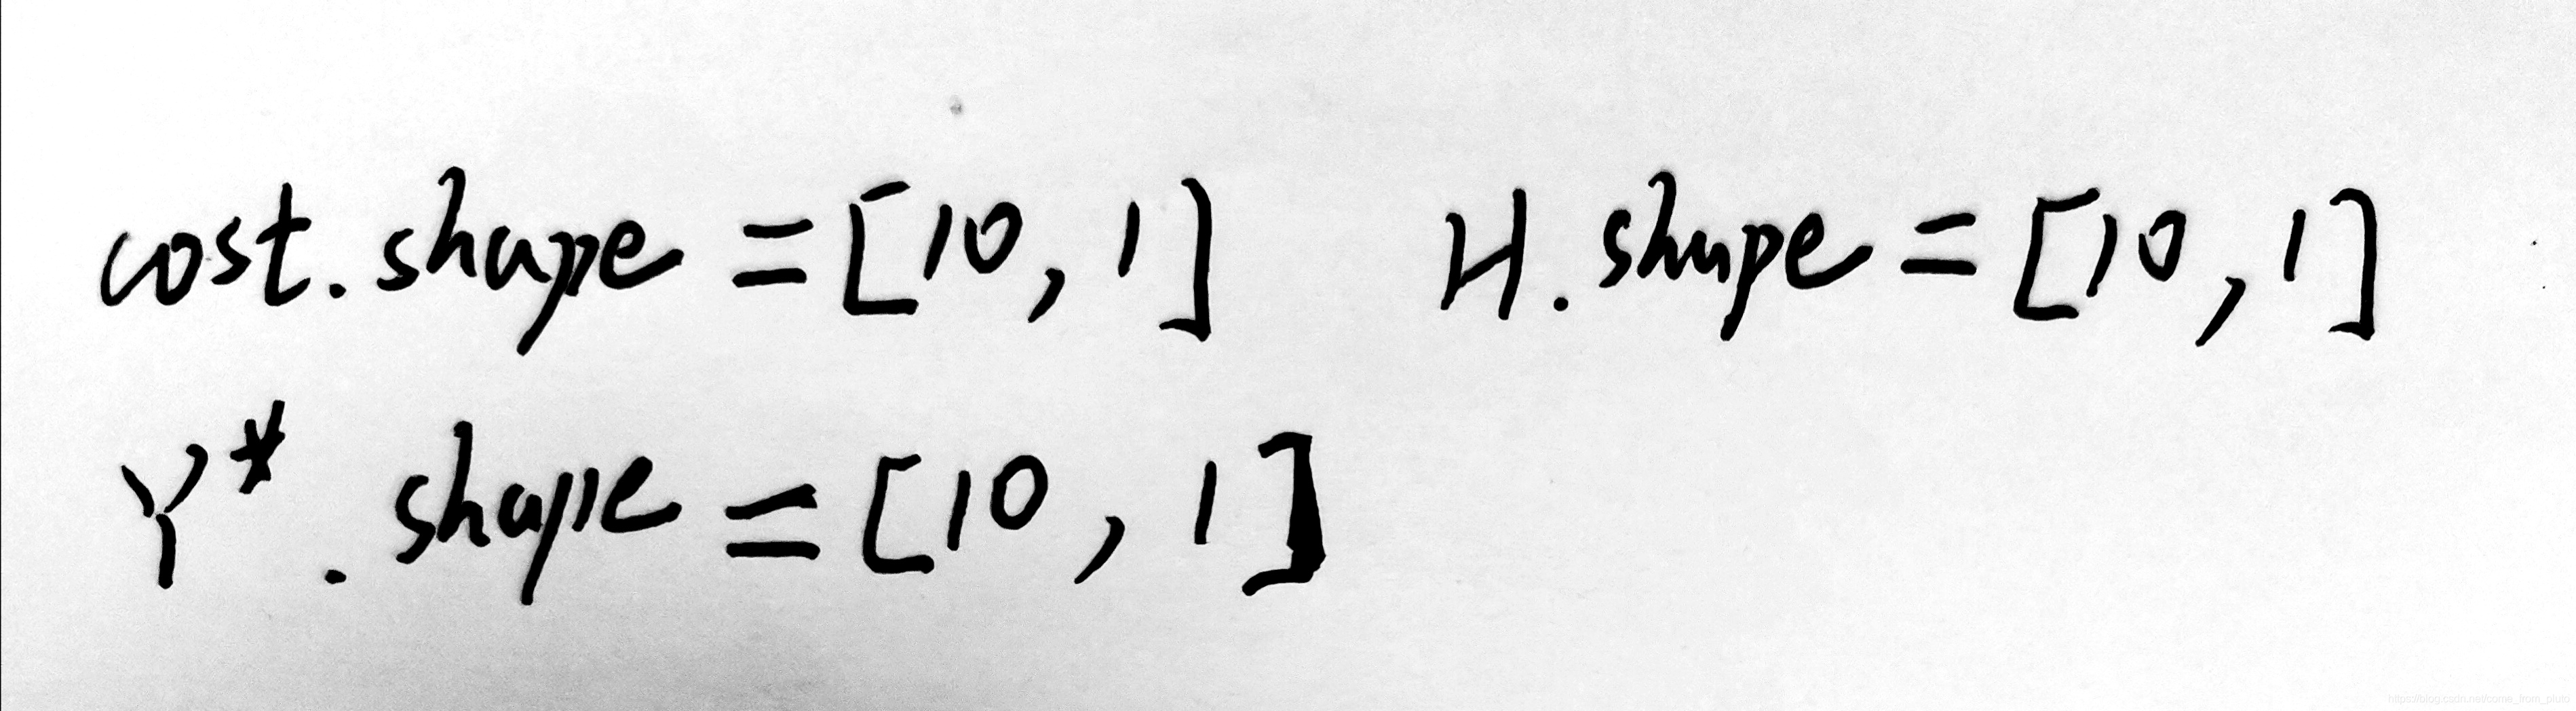 cost.shape = [10, 1] H.shape = [10, 1]
Y*.shape = [10, 1]
https://blog.csdn.net/come_from_pluto